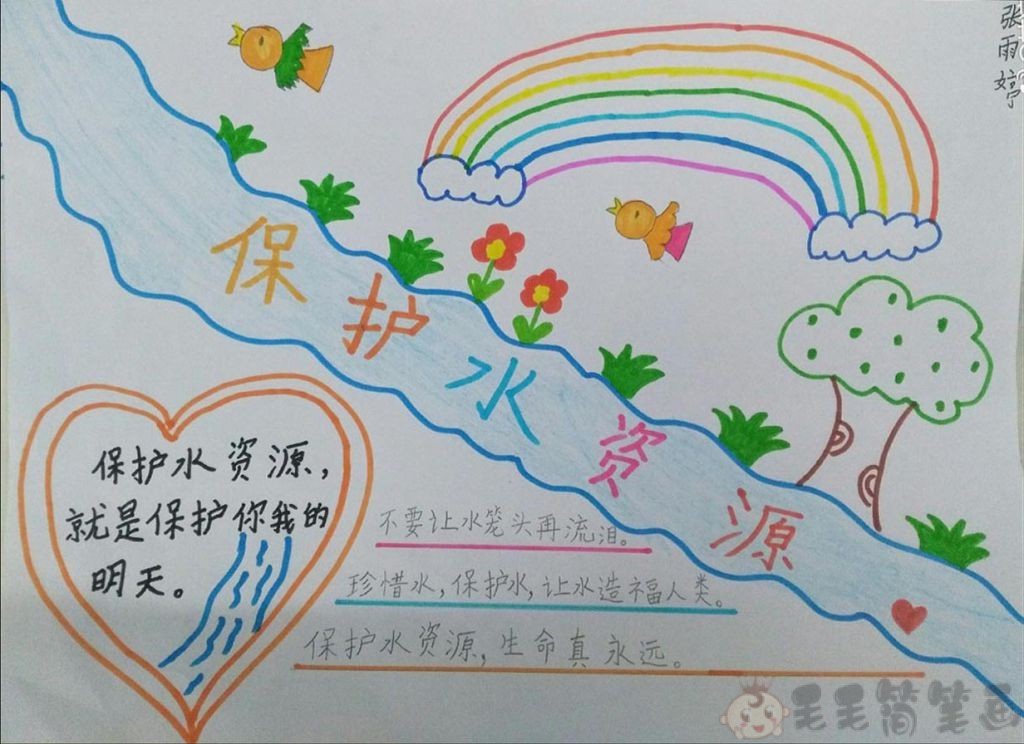 张雨婷
保护水资源
保护水资源,
就是保护你我的
明天。
不要让水笼头再流泪。
珍惜水,保护水,让水造福人类。
保护水资源,生命真永远。
毛毛简笔画